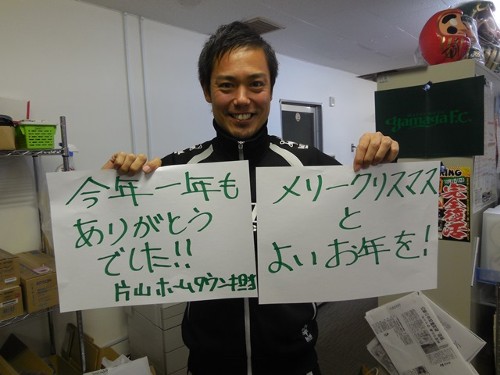 今年一年も
ありがとう
でした!!
片山ホームタウン担当
メリークリスマス
と
よいお年を!